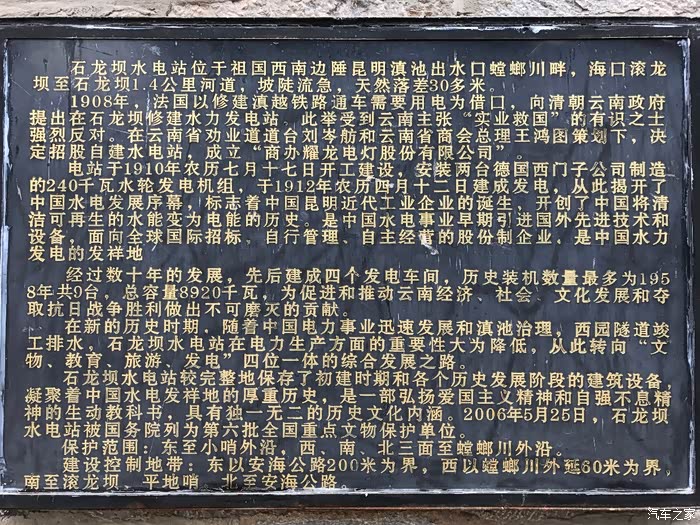 石龙坝水电站位于祖国西南边陲昆明滇池出水口螳螂川畔，海口滚龙
坝至石龙坝1.4公里河道，坡陡流急，天然落差30多米。
1908年，法国以修建滇越铁路通车需要用电为借口，向清朝云南政府
提出在石龙坝修建水力发电站，此举受到云南主张“实业救国”的有识之士
强烈反对。在云南省劝业道道台刘岑舫和云南省商会总理王鸿图策划下，决
定招股自建水电站，成立“商办耀龙电灯股份有限公司”。
电站于1910年农历七月十七日开工建设，安装两台德国西门子公司制造
的240千瓦水轮发电机组，于1912年农历四月十二日建成发电，从此揭开了
中国水电发展序幕，标志着中国昆明近代工业企业的诞生，开创了中国将清
洁可再生的水能变为电能的历史。是中国水电事业早期引进国外先进技术和
设备，面向全球国际招标，自行管理、自主经营的股份制企业，是中国水力
发电的发祥地
经过数十年的发展，先后建成四个发电车间，历史装机数量最多为195
8年共9台，总容量8920千瓦，为促进和推动云南经济、社会、文化发展和夺
取抗日战争胜利做出不可磨灭的贡献。
在新的历史时期，随着中国电力事业迅速发展和滇池治理，西园隧道竣
工排水，石龙坝水电站在电力生产方面的重要性大为降低，从此转向“文
物、教育、旅游、发电”四位一体的综合发展之路。
石龙坝水电站较完整地保存了初建时期和各个历史发展阶段的建筑设备，
凝聚着中国水电发祥地的厚重历史，是一部弘扬爱国主义精神和自强不息精
神的生动教科书，具有独一无二的历史文化内涵。2006年5月25日，石龙坝
水电站被国务院列为第六批全国重点文物保护单位。
保护范围：东至小哨外沿，西、南、北三面至螳螂川外沿。
建设控制地带：东以安海公路200米为界，西以螳螂川外延60米为界，
南至滚龙坝、平地哨，北至安海公路。
汽车之家